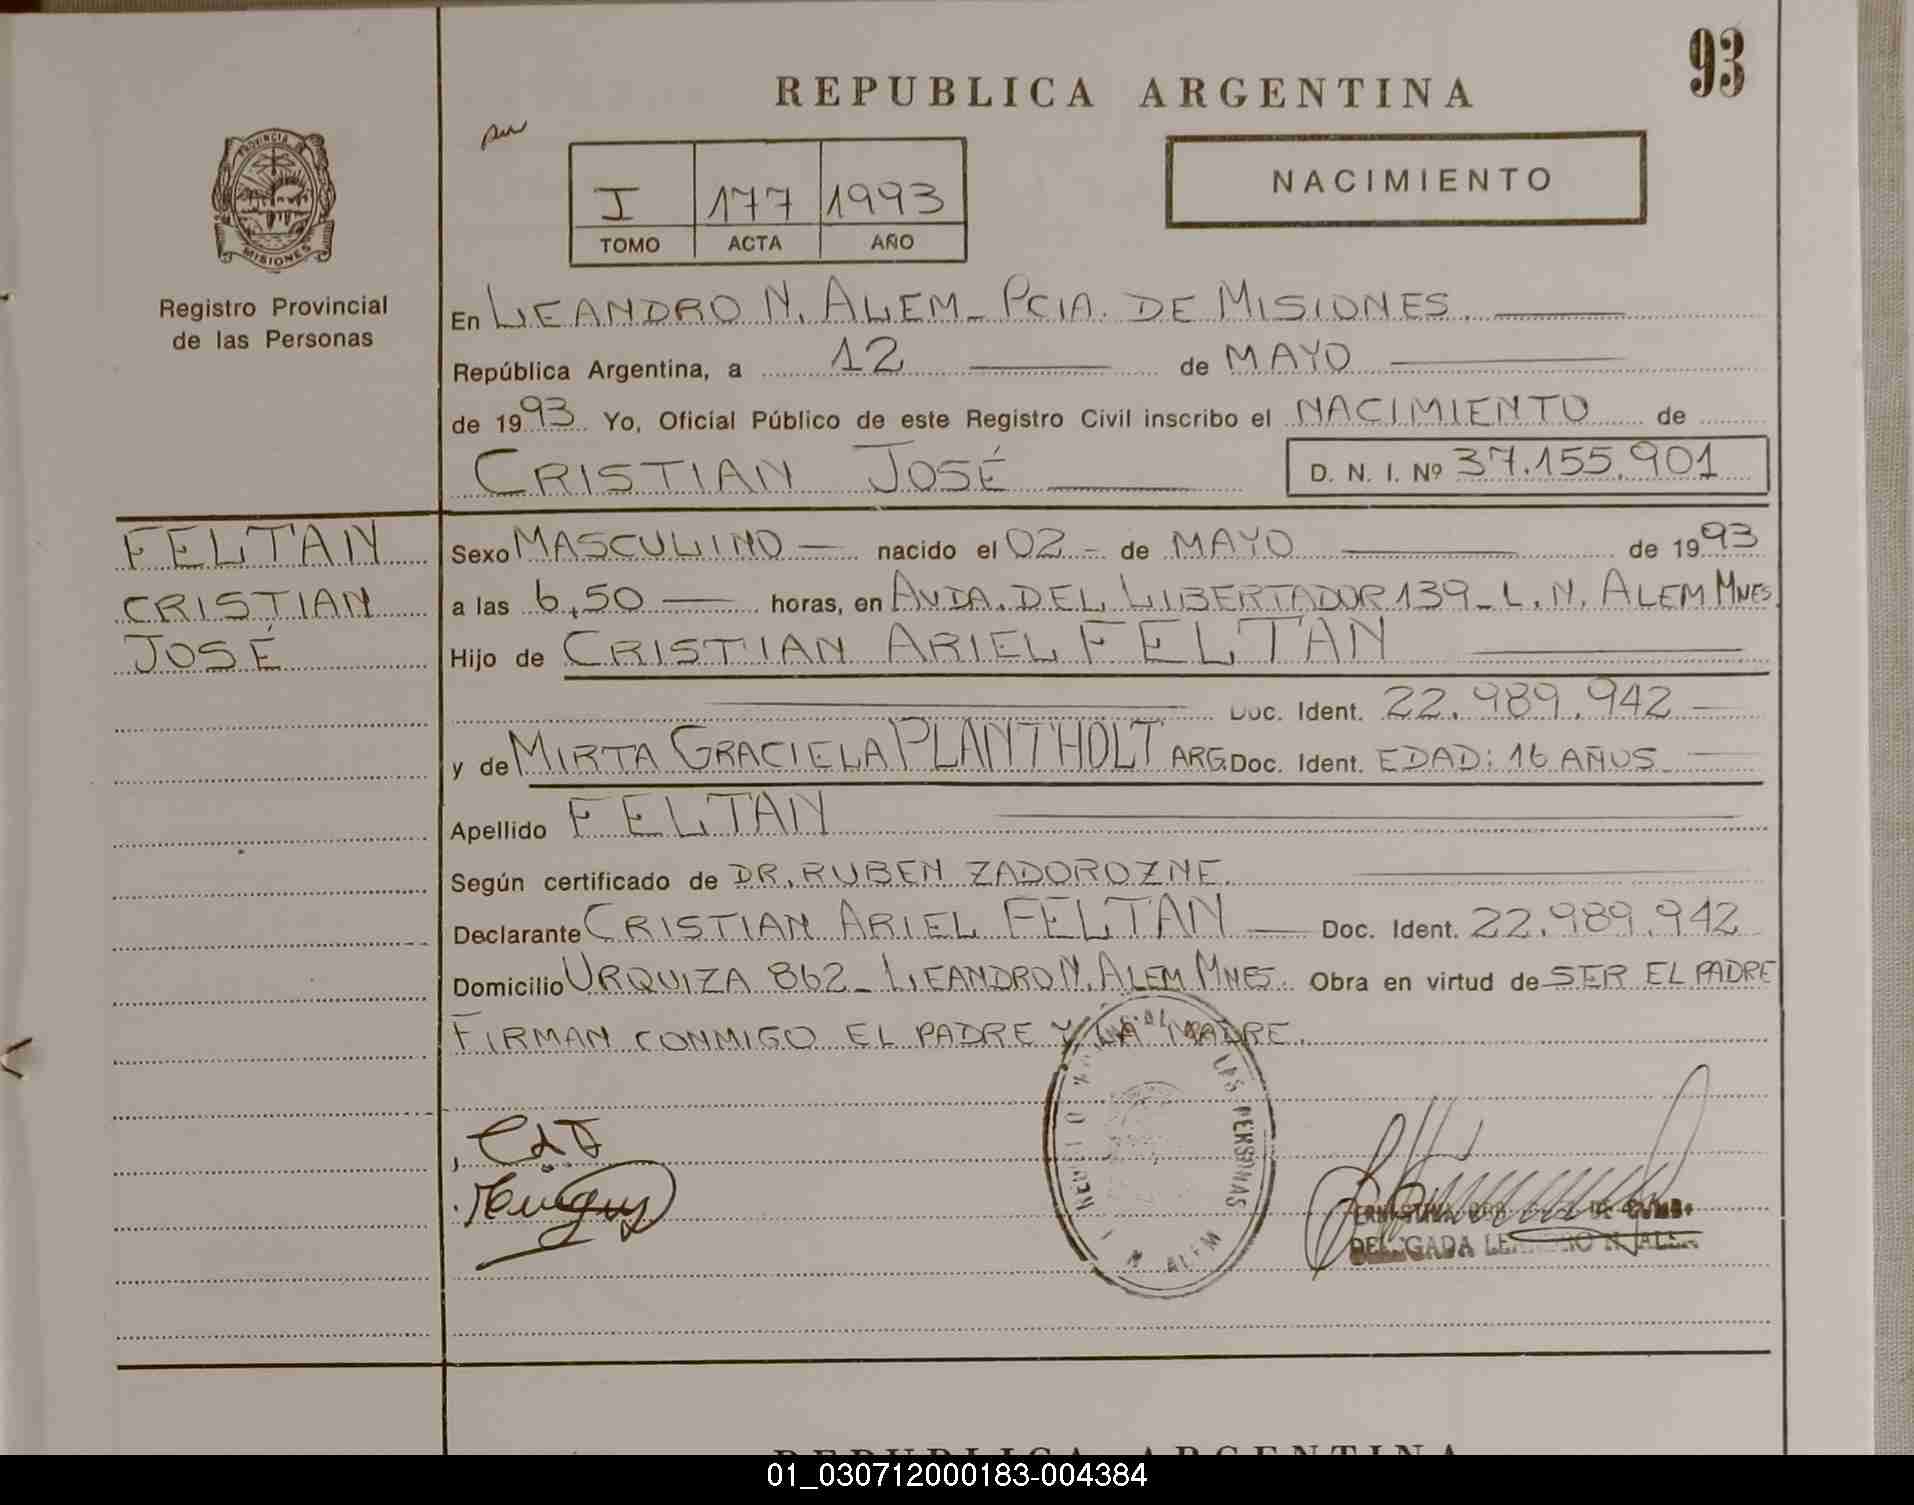 93
REPUBLICA ARGENTINA
PROVINCIA DE
MISIONES
I 177 1993
TOMO ACTA AÑO
NACIMIENTO
Registro Provincial
de las Personas
En LEANDRO N. ALEM - PCIA. DE MISIONES.
República Argentina, a 12 de MAYO
de 1993 Yo, Oficial Público de este Registro Civil inscribo el NACIMIENTO de
CRISTIAN JOSÉ D. N. I. Nº 37.155.901
FELTAN
CRISTIAN
JOSÉ
Sexo MASCULINO nacido el 02 - de MAYO de 1993
a las 6,50 horas, en AVDA. DEL LIBERTADOR 139 - L. N. ALEM MNES.
Hijo de CRISTIAN ARIEL FELTAN
Doc. Ident. 22.989.942
y de MIRTA GRACIELA PLANTHOLT ARG. Doc. Ident. EDAD: 16 AÑOS
Apellido FELTAN
Según certificado de DR. RUBEN ZADOROZNE.
Declarante CRISTIAN ARIEL FELTAN Doc. Ident. 22.989.942
Domicilio URQUIZA 862 - LEANDRO N. ALEM MNES. Obra en virtud de SER EL PADRE
FIRMAN CONMIGO EL PADRE Y LA MADRE.
LAS PERSONAS
N ALEM
REPUBLICA ARGENTINA
01_030712000183-004384